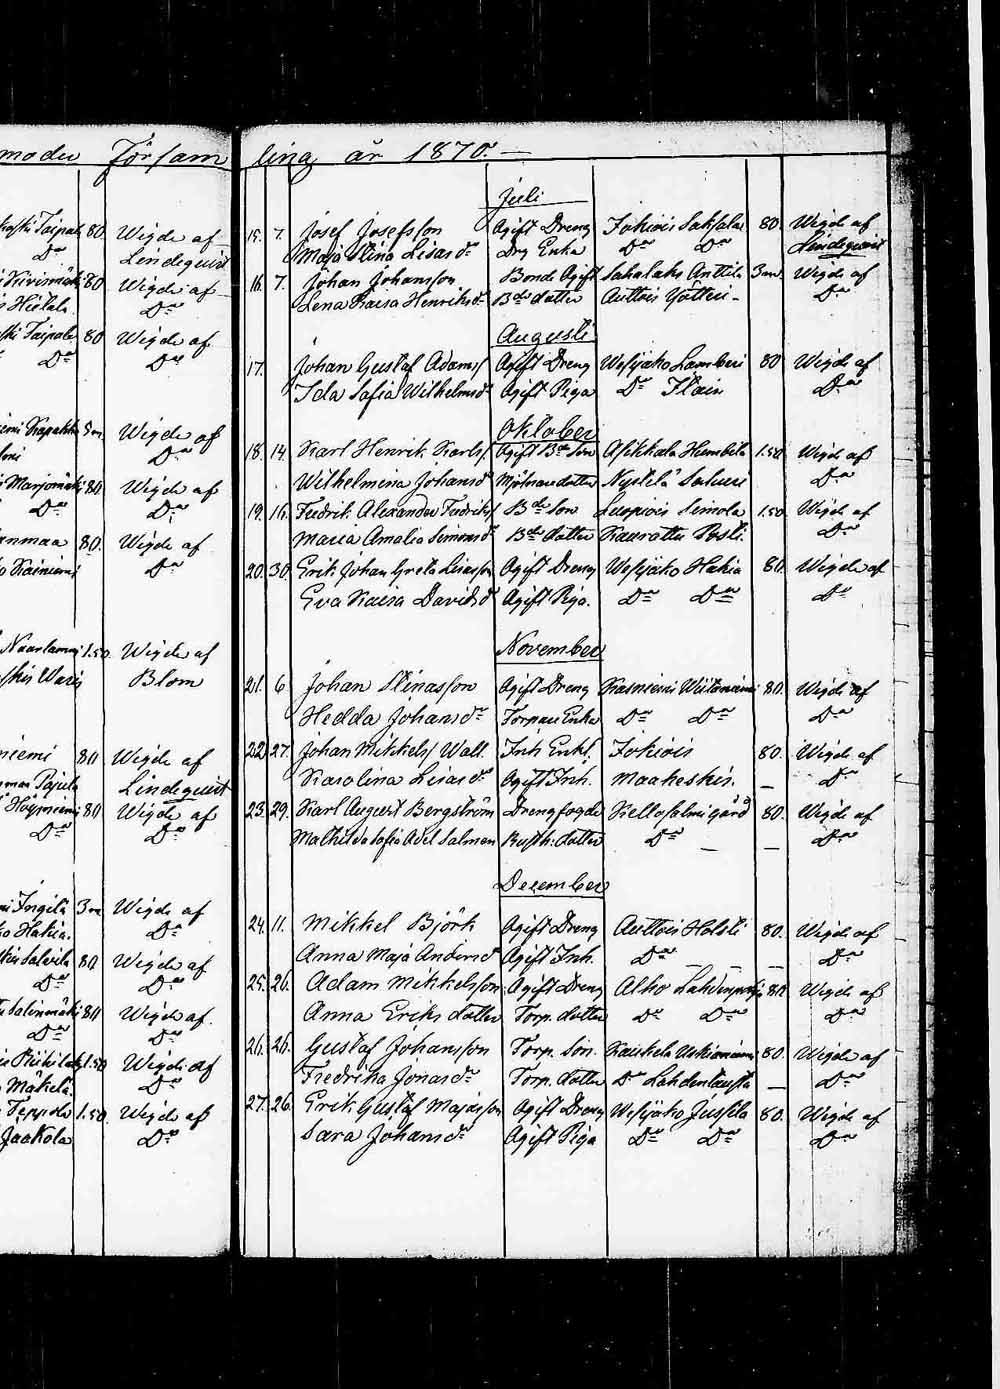 moder Församling år 1870. —
Taipale 80 Wigde af
Do Lindequist
Kivismäki 80 Wigde af
Hietala Do
Taipale 80 Wigde af
Do Do
3 m. Wigde af
Do
Marjomäki 80 Wigde af
Do Do
80. Wigde af
Do
1.50. Wigde af
Blom
niemi 80 Wigde af
Lindequist
80 Wigde af
Do Do
3 m Wigde af
Hakia. Do
80 Wigde af
Do Do
80 Wigde af
Do Do
1.50 Wigde af
Mäkelä. Do
Seppola 1.50. Wigde af
Jaakola Do
Juli
15. 7. Josef Josefsson Ogift Dreng Jokiois Saksala 80 Wigde af
Maja Stina Lisasdr Drg Enka Do Do Lindequist
16. 7. Johan Johansson Bonde Ogift Sahalaks Anttila 3 m. Wigde af
Lena Kaisa Henriksdr Bde dotter Auttois Yötteri - Do
Augusti
17. Johan Gustaf Adamss Ogift Dreng Wesijako Lamberi 80 Wigde af
Ida Sofia Wilhelmsd Ogift Piga Do Ilain Do
Oktober
18. 14. Karl Henrik Karlss. Ogift Bde Son Asikkala Humbila 1.50 Wigde af
Wilhelmina Johansd Mjölnare dotter Nystelä Do
19. 16. Fredrik Alexander Fredrikss Bde Son Luopiois Simola 1.50. Wigde af
Maria Amalia Simonsdr Bde dotter Kauratta Posti. Do
20. 30. Erik Johan Greta Lisasson Ogift Dreng Wesijako Hakia 80. Wigde af
Eva Kaisa Davidsd Ogift Piga. Do Do Do
November
21. 6 Johan Stinasson Ogift Dreng Kasniemi 80. Wigde af
Hedda Johansdr Torpare Enka Do Do Do
22. 27. Johan Mikkelss Wall. Inh Enkl. Jokiois 80. Wigde af
Karolina Lisasdr Ogift Inh. Maakeskis. — Do
23. 29. Karl August Bergström Drengfogde Kellosalmi gård 80. Wigde af
Mathilda Sofia Adel Salmen Rusth: dotter Do — — Do
December
24. 11. Mikkel Björk Ogift Dreng Auttois Holsti 80. Wigde af
Anna Maja Andersd Ogift Inh. Do — — Do
25. 26. Adam Mikkelsson Ogift Dreng Alho 80 Wigde af
Anna Eriksdotter Torp. dotter Do Do Do
26. 26. Gustaf Johansson Torp. Son. Kaiskela 80. Wigde af
Fredrika Jonasdr Torp. dotter Do Lahdentausta — Do
27. 26. Erik Gustaf Majasson Ogift Dreng Wesijako Jussila 80. Wigde af
Sara Johansdr Ogift Piga Do Do Do